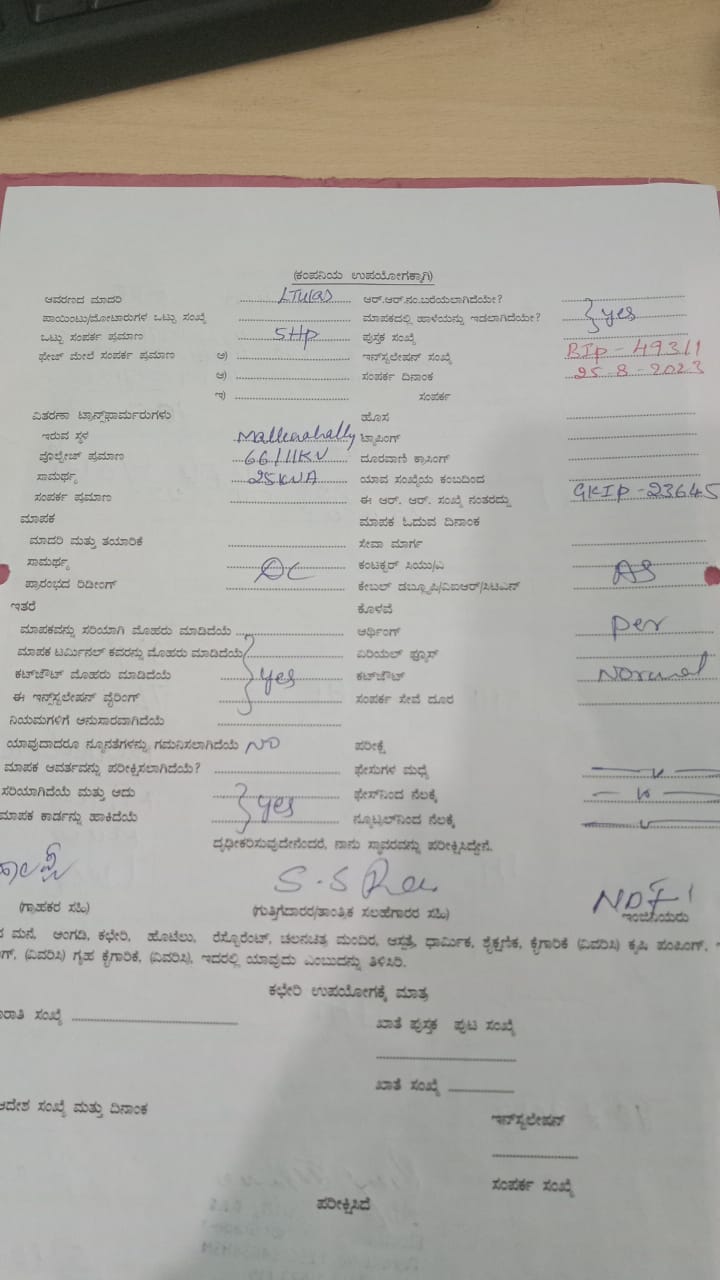 (ಕಂಪನಿಯ ಉಪಯೋಗಕ್ಕಾಗಿ)
ಆವರಣದ ಮಾದರಿ ಆರ್.ಆರ್.ನಂ.ಬರೆಯಲಾಗಿದೆಯೇ?
ಪಾಯಿಂಟು/ಮೋಟಾರುಗಳ ಒಟ್ಟು ಸಂಖ್ಯೆ ಮಾಪಕದಲ್ಲಿ ಹಾಳೆಯನ್ನು ಇಡಲಾಗಿದೆಯೇ? yes
ಒಟ್ಟು ಸಂಪರ್ಕ ಪ್ರಮಾಣ 5HP ಪುಸ್ತಕ ಸಂಖ್ಯೆ
ಫೇಜ್ ಮೇಲೆ ಸಂಪರ್ಕ ಪ್ರಮಾಣ ಅ) ಇನ್‌ಸ್ಟಲೇಷನ್ ಸಂಖ್ಯೆ BIP-49311
ಆ) ಸಂಪರ್ಕ ದಿನಾಂಕ 25-8-2023
ಇ) ಸಂಪರ್ಕ
ವಿತರಣಾ ಟ್ರಾನ್ಸ್‌ಫಾರ್ಮರುಗಳು ಹೊಸ
ಇರುವ ಸ್ಥಳ Mallenahally ಟ್ಯಾಪಿಂಗ್
ವೊಲ್ಟೇಜ್ ಪ್ರಮಾಣ 66/11KV ದೂರವಾಣಿ ಕ್ರಾಸಿಂಗ್
ಸಾಮರ್ಥ್ಯ 25KVA ಯಾವ ಸಂಖ್ಯೆಯ ಕಂಬದಿಂದ
ಸಂಪರ್ಕ ಪ್ರಮಾಣ ಈ ಆರ್. ಆರ್. ಸಂಖ್ಯೆ ನಂತರದ್ದು GKIP-23645
ಮಾಪಕ ಮಾಪಕ ಓದುವ ದಿನಾಂಕ
ಮಾದರಿ ಮತ್ತು ತಯಾರಿಕೆ ಸೇವಾ ಮಾರ್ಗ
ಸಾಮರ್ಥ್ಯ ಕಂಟಕ್ಟರ್ ಸಿಯು/ಎ AS
ಪ್ರಾರಂಭದ ರಿಡೀಂಗ್ ಕೇಬಲ್ ಡಬ್ಲ್ಯೂಪಿ/ವಿಐಆರ್/ಸಿಟಿಎಸ್
ಇತರೆ ಕೊಳವೆ
ಮಾಪಕವನ್ನು ಸರಿಯಾಗಿ ಮೊಹರು ಮಾಡಿದೆಯೆ ಆರ್ಥಿಂಗ್ per
ಮಾಪಕ ಟರ್ಮಿನಲ್ ಕವರನ್ನು ಮೊಹರು ಮಾಡಿದೆಯೆ ಏರಿಯಲ್ ಫ್ಯೂಸ್
ಕಟ್‌ಔಟ್ ಮೊಹರು ಮಾಡಿದೆಯೆ yes ಕಟ್‌ಔಟ್ Normal
ಈ ಇನ್‌ಸ್ಟಲೇಷನ್ ವೈರಿಂಗ್ ಸಂಪರ್ಕ ಸೇವೆ ದೂರ
ನಿಯಮಗಳಿಗೆ ಅನುಸಾರವಾಗಿದೆಯೆ
ಯಾವುದಾದರೂ ನ್ಯೂನತೆಗಳನ್ನು ಗಮನಿಸಲಾಗಿದೆಯೆ NO ಪರೀಕ್ಷೆ
ಮಾಪಕ ಆವರ್ತವನ್ನು ಪರೀಕ್ಷಿಸಲಾಗಿದೆಯೆ? ಫೇಸುಗಳ ಮಧ್ಯೆ
ಸರಿಯಾಗಿದೆಯೆ ಮತ್ತು ಅದು yes ಫೇಸ್‌ನಿಂದ ನೆಲಕ್ಕೆ
ಮಾಪಕ ಕಾರ್ಡನ್ನು ಹಾಕಿದೆಯೆ ನ್ಯೂಟ್ರಲ್‌ನಿಂದ ನೆಲಕ್ಕೆ
ದೃಢೀಕರಿಸುವುದೇನೆಂದರೆ, ನಾನು ಸ್ಥಾವರವನ್ನು ಪರೀಕ್ಷಿಸಿದ್ದೇನೆ.
(ಗ್ರಾಹಕರ ಸಹಿ) (ಗುತ್ತಿಗೆದಾರರ/ತಾಂತ್ರಿಕ ಸಲಹೆಗಾರರ ಸಹಿ) ಇಂಜಿನಿಯರು
ಮನೆ, ಅಂಗಡಿ, ಕಛೇರಿ, ಹೊಟೆಲು, ರೆಸ್ಟೊರೆಂಟ್, ಚಲನಚಿತ್ರ ಮಂದಿರ, ಆಸ್ಪತ್ರೆ, ಧಾರ್ಮಿಕ, ಶೈಕ್ಷಣಿಕ, ಕೈಗಾರಿಕೆ (ವಿವರಿಸಿ) ಕೃಷಿ ಪಂಪಿಂಗ್,
(ವಿವರಿಸಿ) ಗೃಹ ಕೈಗಾರಿಕೆ, (ವಿವರಿಸಿ), ಇದರಲ್ಲಿ ಯಾವುದು ಎಂಬುದನ್ನು ತಿಳಿಸಿರಿ.
ಕಛೇರಿ ಉಪಯೋಗಕ್ಕೆ ಮಾತ್ರ
ಸಂಖ್ಯೆ ಖಾತೆ ಪುಸ್ತಕ ಪುಟ ಸಂಖ್ಯೆ
ಖಾತೆ ಸಂಖ್ಯೆ
ಆದೇಶ ಸಂಖ್ಯೆ ಮತ್ತು ದಿನಾಂಕ
ಇನ್‌ಸ್ಟಲೇಷನ್
ಸಂಪರ್ಕ ಸಂಖ್ಯೆ
ಪರೀಕ್ಷಿಸಿದೆ